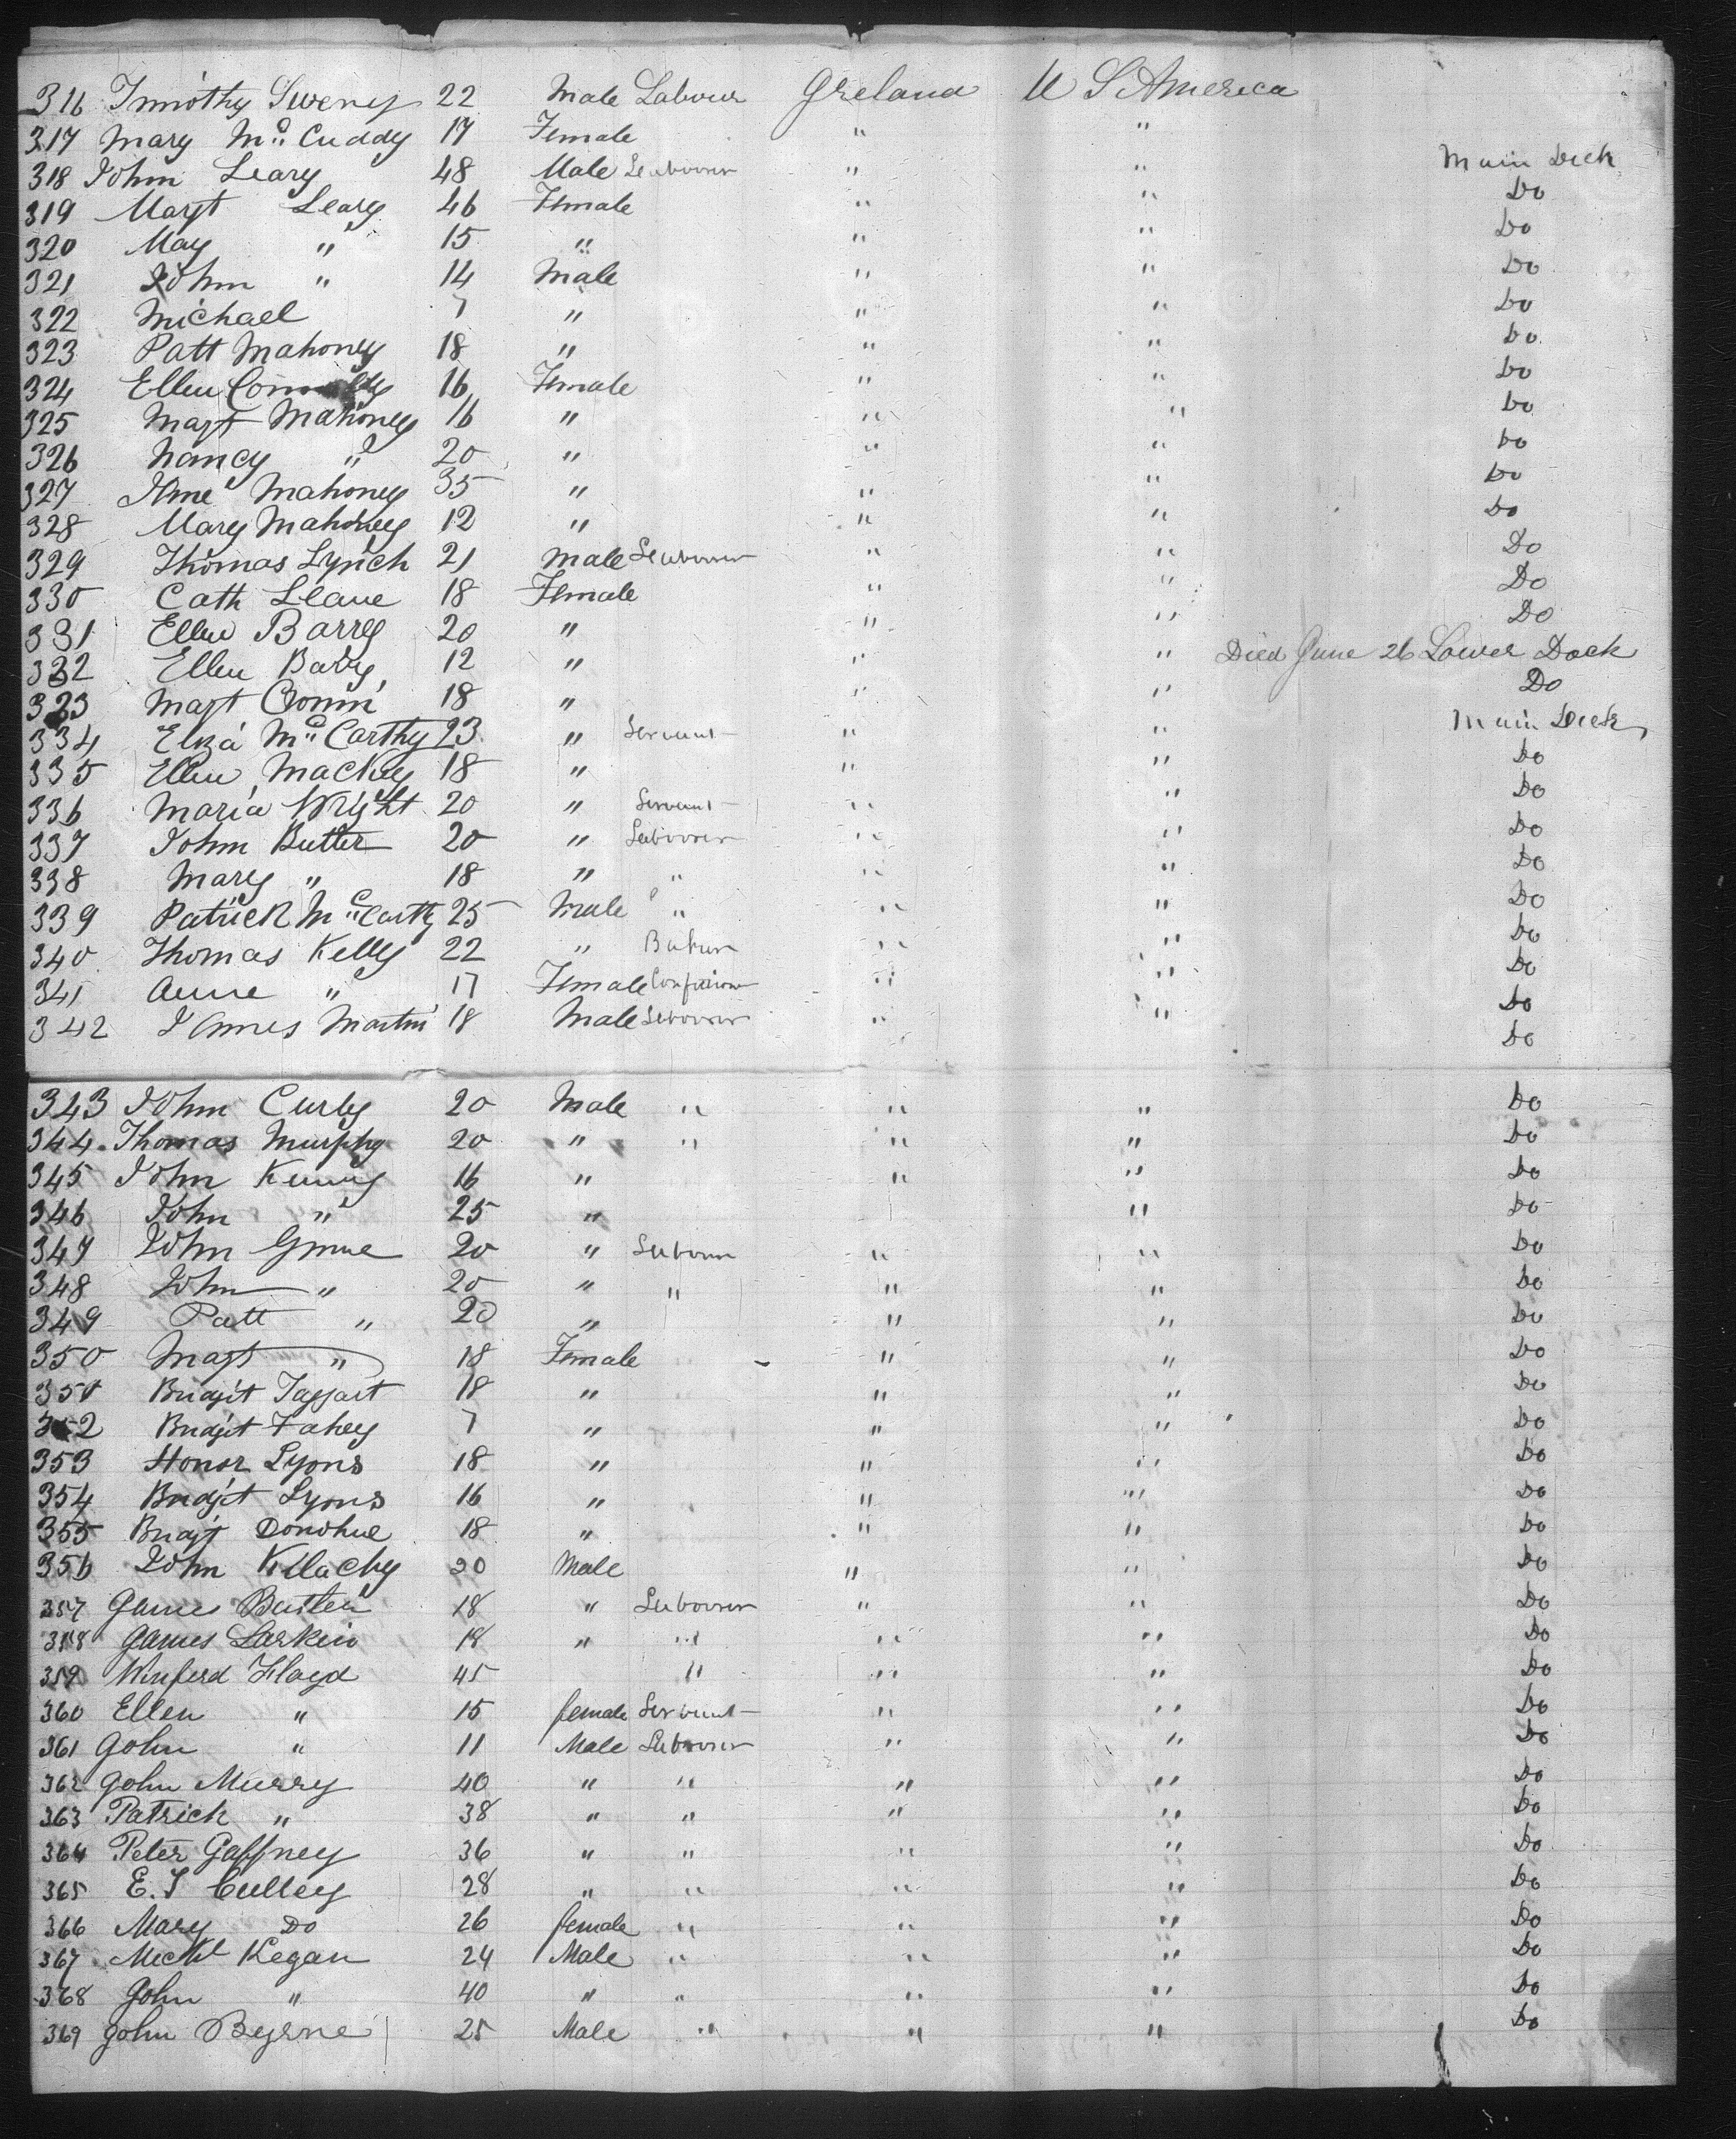 316 Timothy Sweney 22 Male Labour Ireland U S America
317 Mary Mc Cuddy 17 Female " "
318 John Leary 48 Male Labourer " " Main Deck
319 Margt Leary 46 Female " " Do
320 May " 15 " " " Do
321 John " 14 Male " " Do
322 Michael 7 " " " Do
323 Patt Mahoney 18 " " " Do
324 Ellen 16 Female " " Do
325 Margt Mahoney 16 " " " Do
326 Nancy " 20 " " " Do
327 Mahoney 35 " " " Do
328 Mary Mahoney 12 " " " Do
329 Thomas Lynch 21 Male Labourer " " Do
330 Cath Leane 18 Female " " Do
331 Ellen Barry 20 " " " Do
332 Ellen 12 " " " Died June 26 Lower Deck
333 Margt Cronin 18 " " " Do
334 Eliza Mc Carthy 23 " Servant " " Main Deck
335 Ellen Mackey 18 " " " Do
336 Maria Wright 20 " Servant " " Do
337 John Butler 20 " Labourer " " Do
338 Mary " 18 " " " " Do
339 Patrick Mc Carty 25 Male " " " Do
340 Thomas Kelly 22 " " " Do
341 Anne " 17 Female " " Do
342 James Martin 18 Male Labourer " " Do
Do
343 John Curly 20 Male " " " Do
344 Thomas Murphy 20 " " " " Do
345 John 16 " " " Do
346 John " 25 " " Do
347 John 20 " Labourer " " Do
348 John " 20 " " " " Do
349 Patt " 20 " " " Do
350 Margt " 18 Female " " Do
351 Bridgit Taggart 18 " " " Do
352 Bridgit Fahey 7 " " " Do
353 Honor Lyons 18 " " " Do
354 Bridgit Lyons 16 " " " Do
355 Bridgt Donohue 18 " " " Do
356 John Killachy 20 Male " " Do
357 James 18 " Labourer " " Do
358 James Larkin 18 " " " " Do
359 Winferd Floyd 45 " " " Do
360 Ellen " 15 female Servant " " Do
361 John " 11 Male Labourer " " Do
362 John Murry 40 " " " " Do
363 Patrick " 38 " " " " Do
364 Peter Gaffney 36 " " " " Do
365 E. J Culley 28 " " " " Do
366 Mary Do 26 female " " " Do
367 Michl Kegan 24 Male " " " Do
368 John " 40 " " " " Do
369 John Byrne 25 Male " " " Do